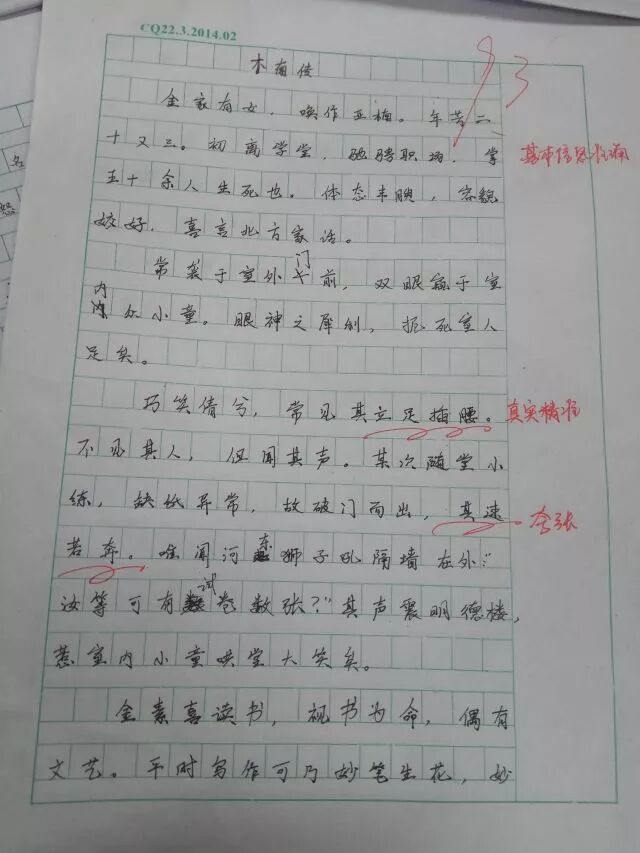 CQ22.3.2014.02
木南传
93
金家有女，唤作亚楠。年芳二
十又三。初离学堂，驰骋职场，掌
五十余人生死也。体态丰腴，容貌
姣好，喜言北方家话。
基本信息
常袭于室外门前，双眼窥于室
内众小童。眼神之犀利，扼死室人
足矣。
巧笑倩兮，常见其立足插腰。
真实精准
不见其人，但闻其声。某次随堂小
练，缺纸异常，故破门而出，其速
夸张
若奔。唯闻河东狮子吼隔墙在外："
汝等可有试卷数张？"其声震明德楼，
惹室内小童哄堂大笑矣。
金素喜读书，视书为命，偶有
文艺。平时写作可乃妙笔生花，妙